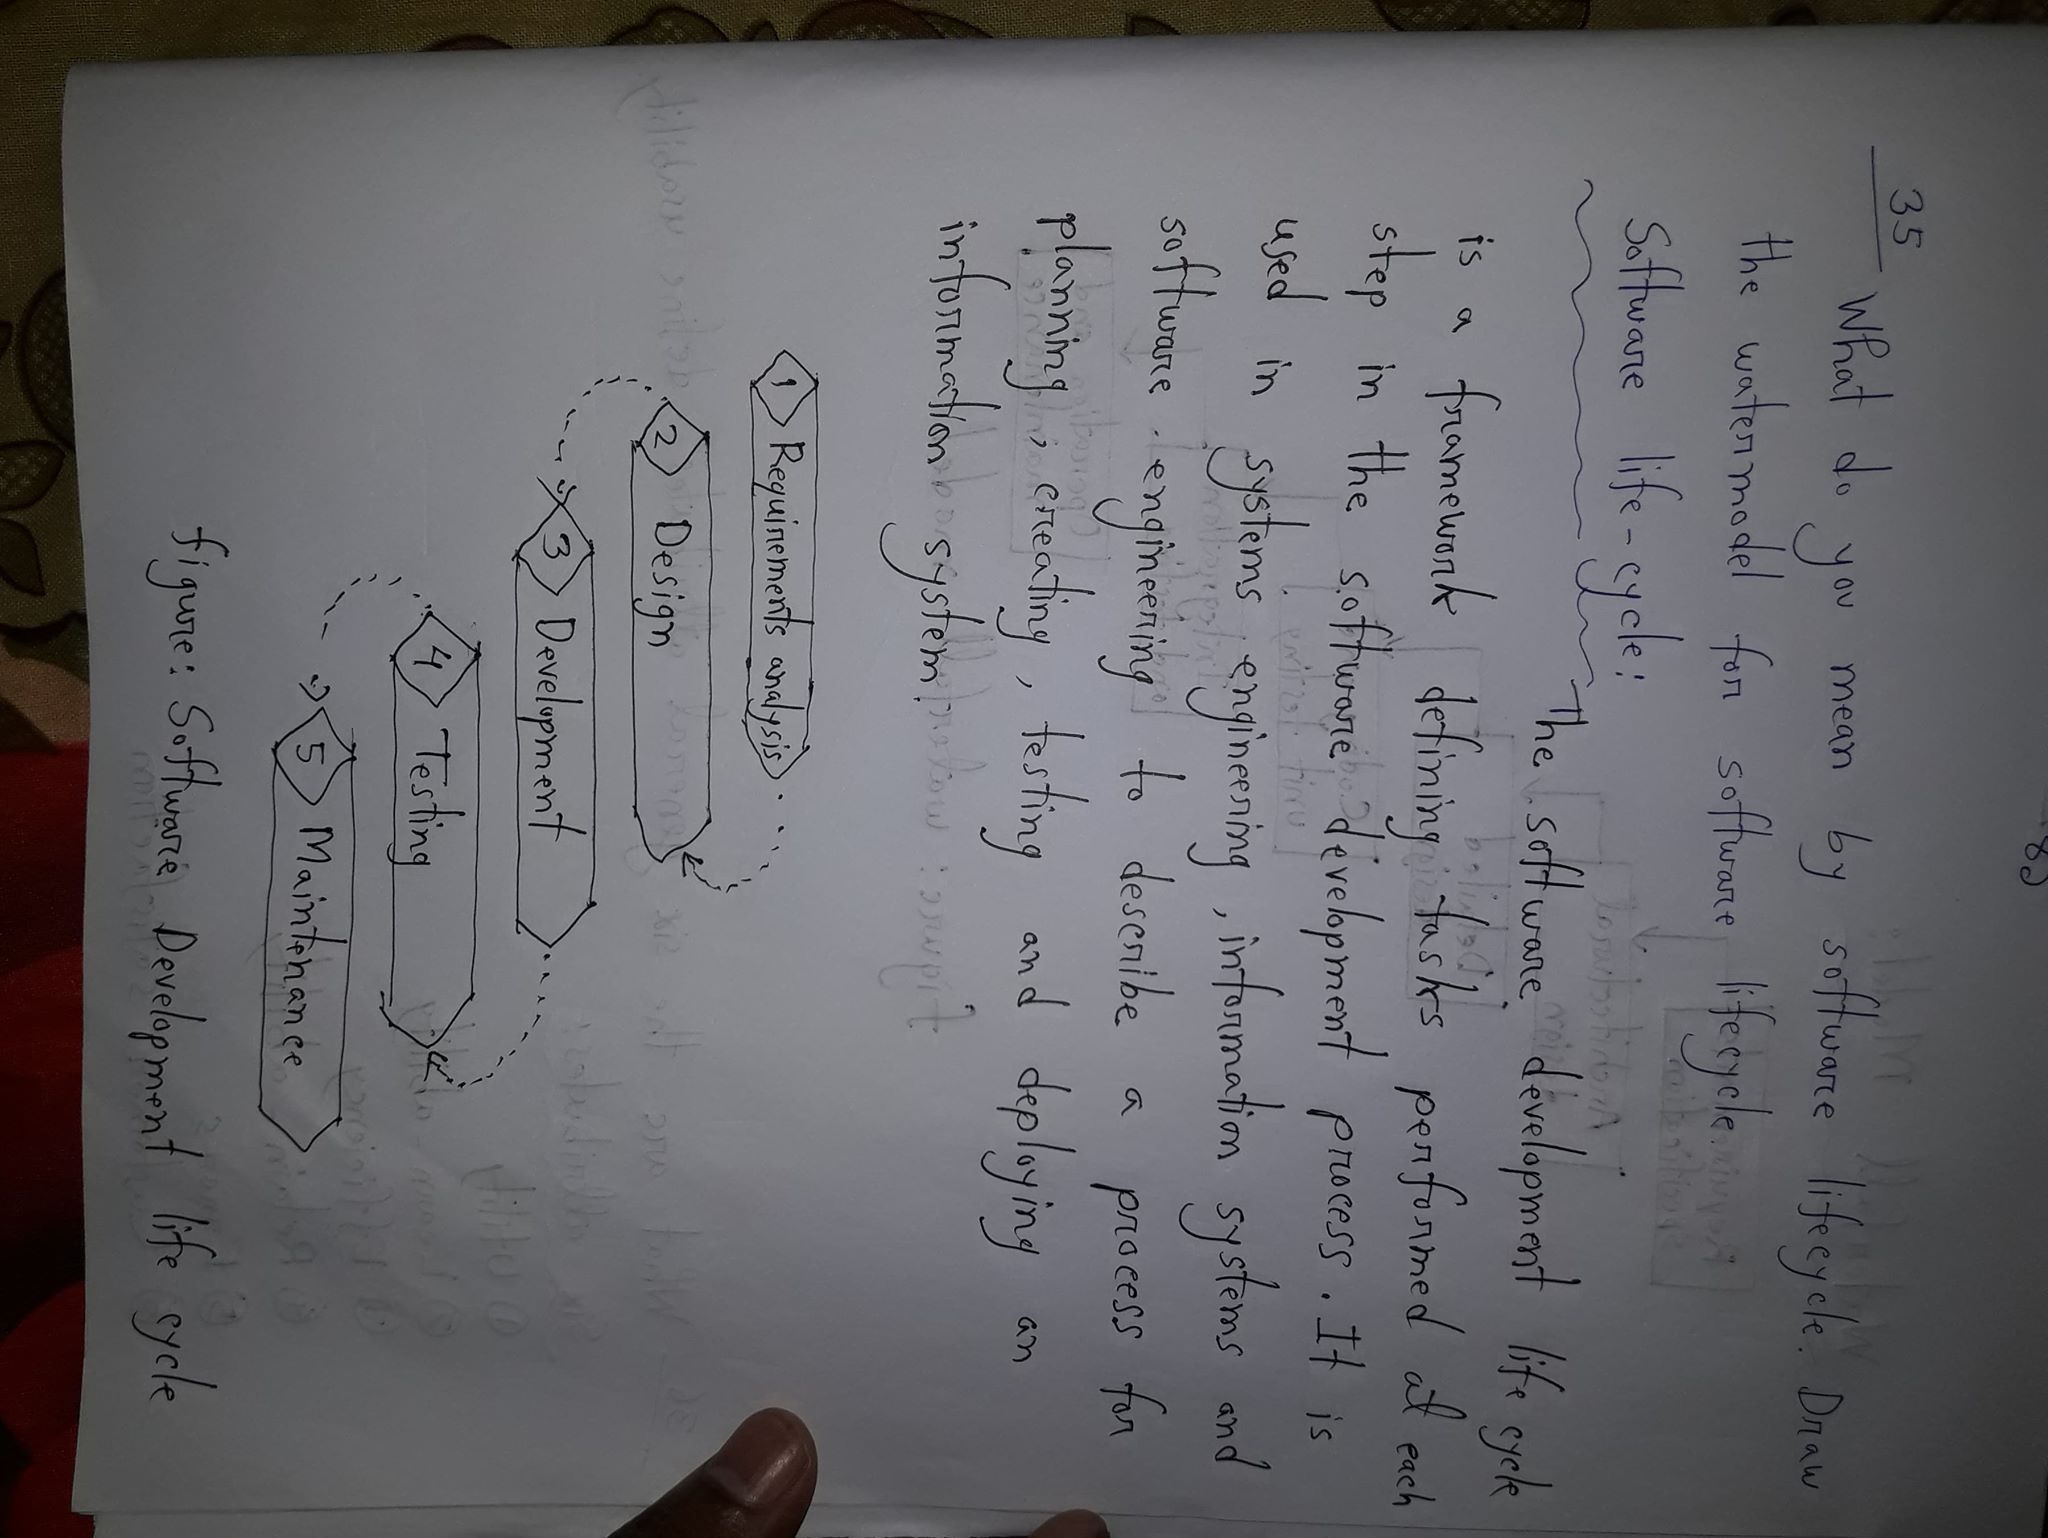 35
What do you mean by software lifecycle. Draw
the watermodel for software lifecycle.
Software life-cycle:
The software development life cycle
is a framework defining tasks performed at each
step in the software development process. It is
used in systems engineering, information systems and
software engineering to describe a process for
planning, creating, testing and deploying an
information system.
1 Requirements analysis
2 Design
3 Development
4 Testing
5 Maintenance
figure: Software Development life cycle